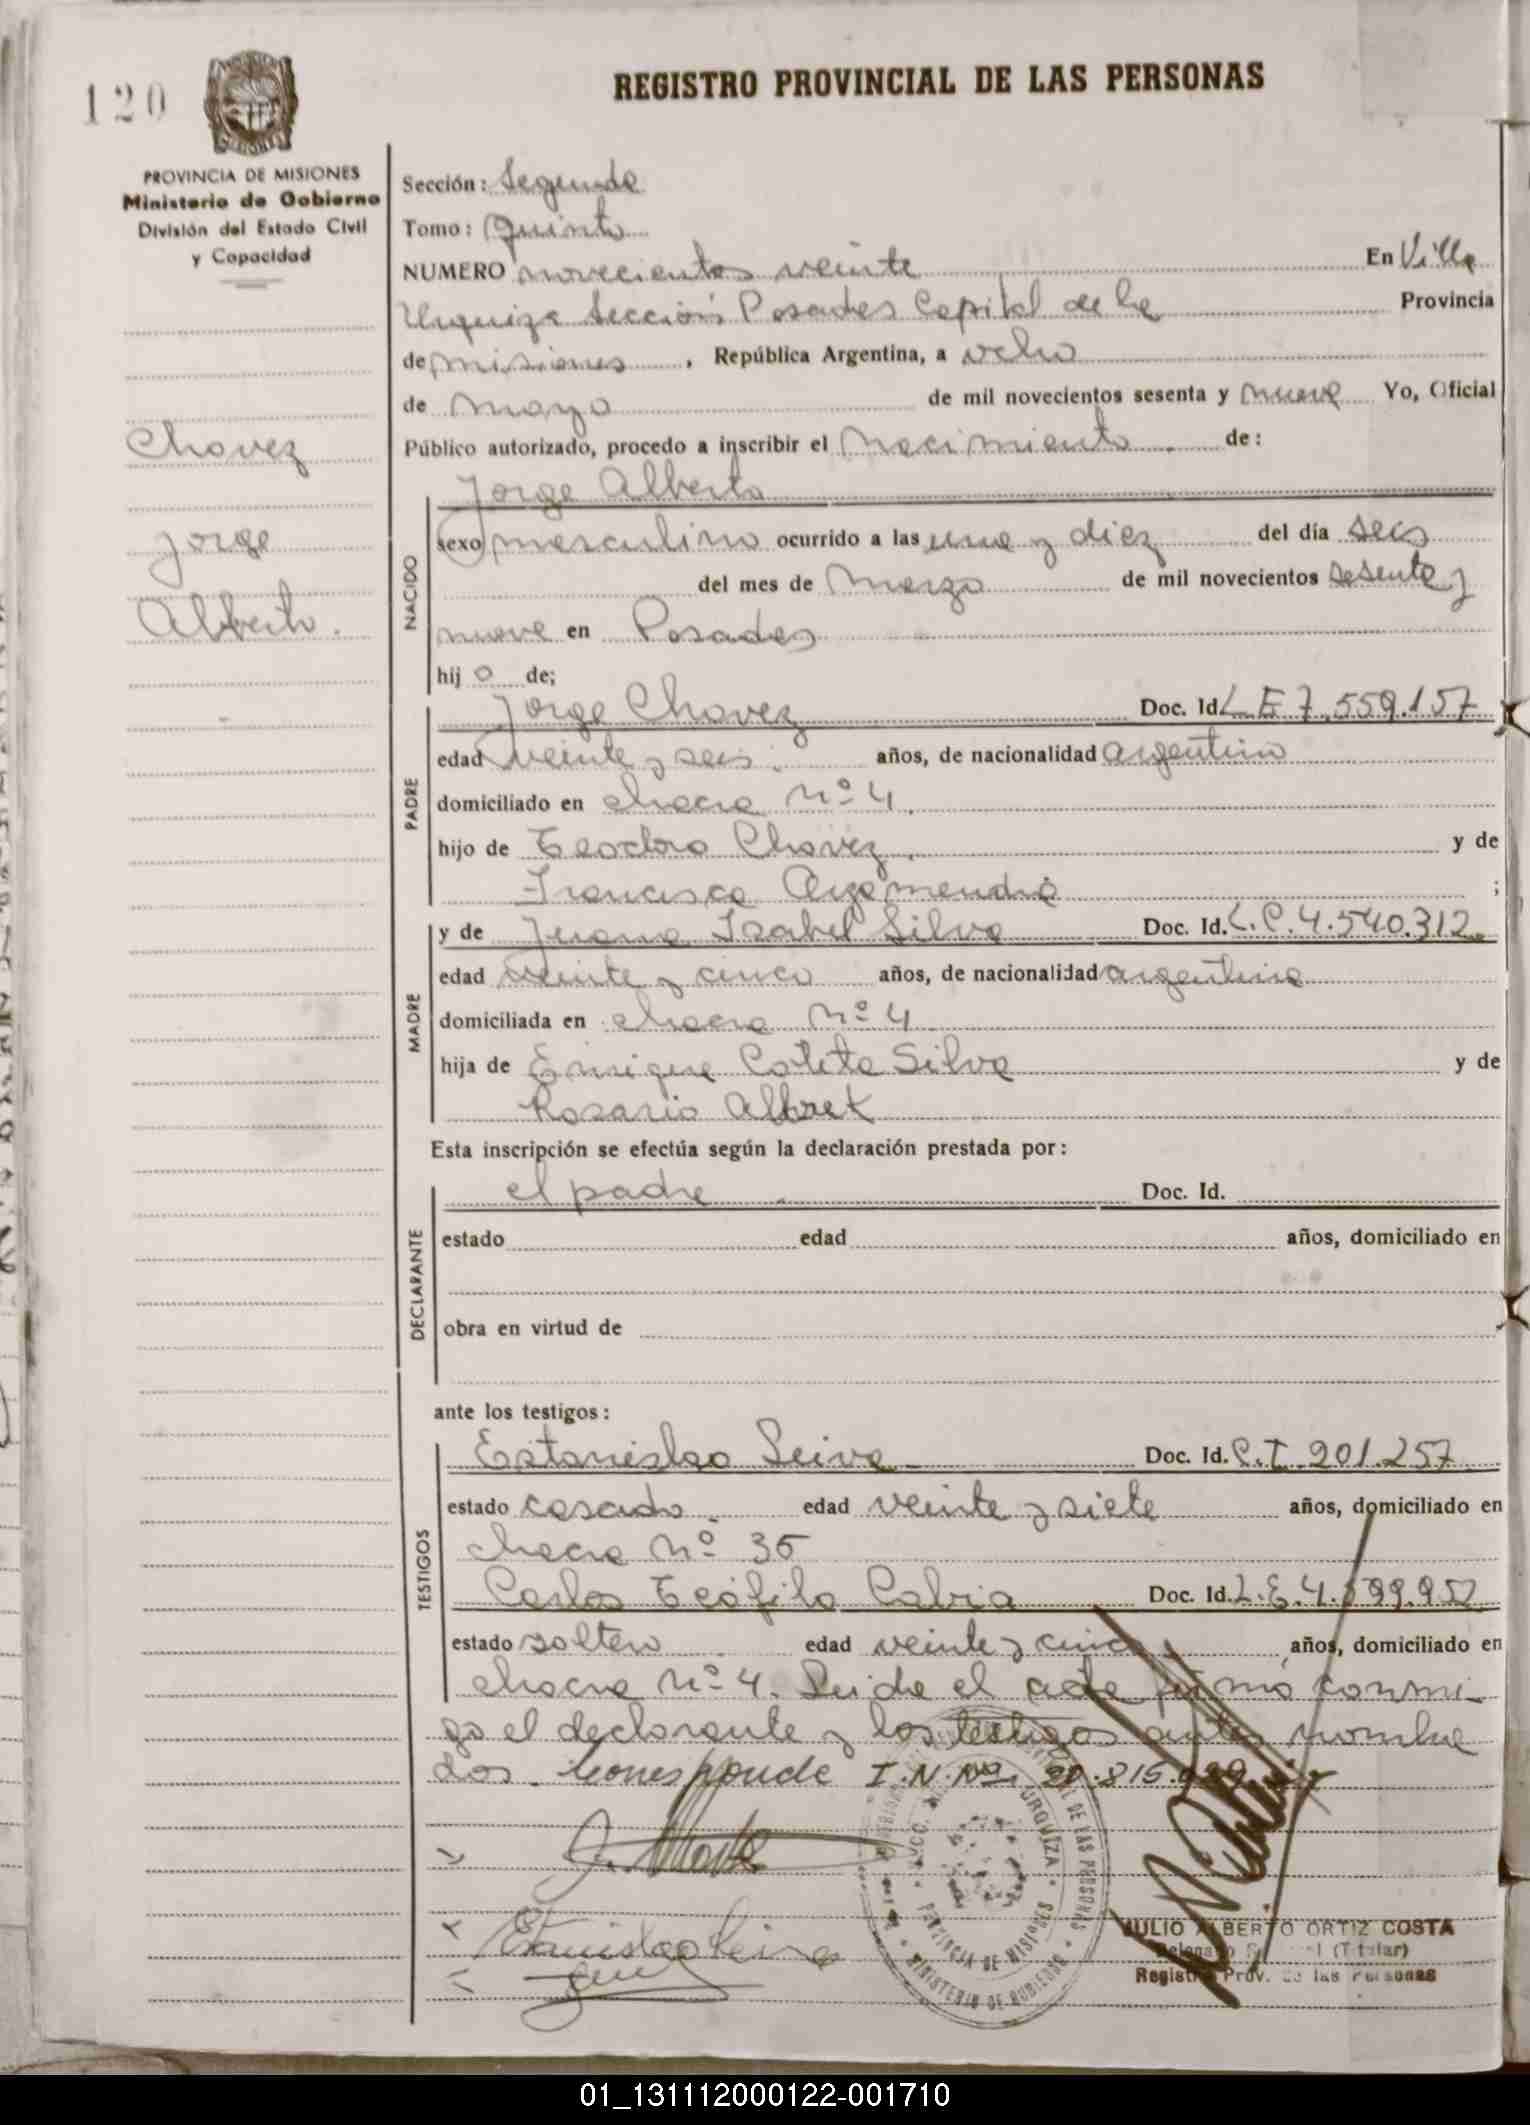 120
REGISTRO PROVINCIAL DE LAS PERSONAS
PROVINCIA DE MISIONES
Ministerio de Gobierno
División del Estado Civil
y Capacidad
Chavez
Jorge
Alberto.
Sección: Segunda
Tomo: Quinto
NUMERO novecientos veinte En Villa
Urquiza Sección Posadas Capital de la Provincia
de Misiones, República Argentina, a ocho
de Mayo de mil novecientos sesenta y nueve Yo, Oficial
Público autorizado, procedo a inscribir el Nacimiento de:
Jorge Alberto
NACIDO
sexo masculino ocurrido a las una y diez del día seis
del mes de Marzo de mil novecientos sesenta y
nueve en Posadas
hij o de;
PADRE
Jorge Chavez Doc. Id. L E 7.559.157
edad veinte y seis. años, de nacionalidad argentino
domiciliado en chacra Nº 4.
hijo de Teodoro Chavez. y de
Francisca ;
MADRE
y de Juana Isabel Silva Doc. Id. L.C. 4.540.312.
edad veinte y cinco años, de nacionalidad argentina
domiciliada en chacra Nº 4
hija de Enrique Silva y de
Rosario
Esta inscripción se efectúa según la declaración prestada por:
DECLARANTE
el padre. Doc. Id.
estado edad años, domiciliado en
obra en virtud de
ante los testigos:
TESTIGOS
Estanislao Leiva Doc. Id. C.I. 201.257
estado casado. edad veinte y siete años, domiciliado en
chacra Nº 35
Carlos Teófilo Doc. Id. L.E. 4.
estado soltero edad veinte y cinco, años, domiciliado en
chacra Nº 4. Leida el acta firmó conmi-
go el declarante y los testigos antes nombra
dos. Corresponde I.N. Nº
Estanislao Leiva
URQUIZA
PROVINCIA DE MISIONES
MINISTERIO DE GOBIERNO
DE LAS PERSONAS
JULIO ALBERTO ORTIZ COSTA
(Titular)
Registro Prov. de las Personas
01_131112000122-001710